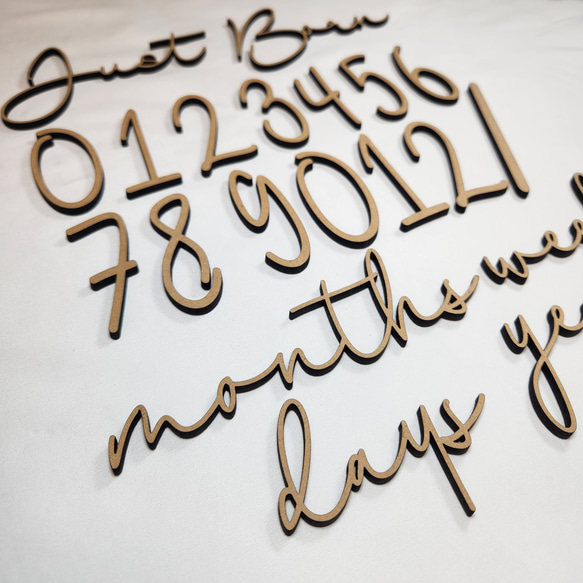 Just Born
0 1 2 3 4 5 6
7 8 9 0 1 2
months wee
days ye